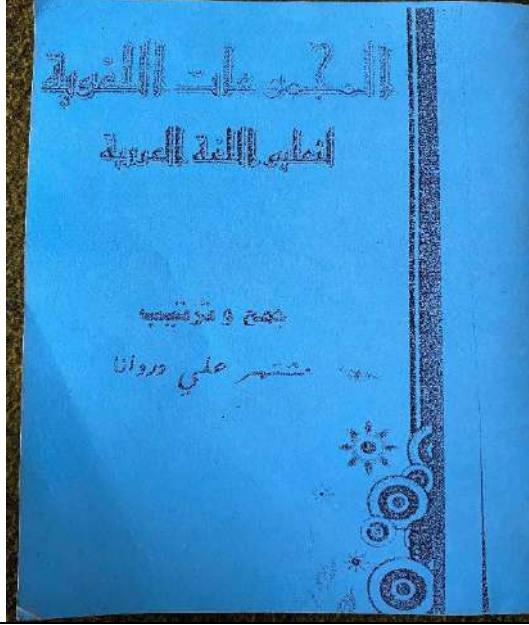 المجموعات اللغوية
لتعليم اللغة العربية
جمع و ترتيب
علي وروانا